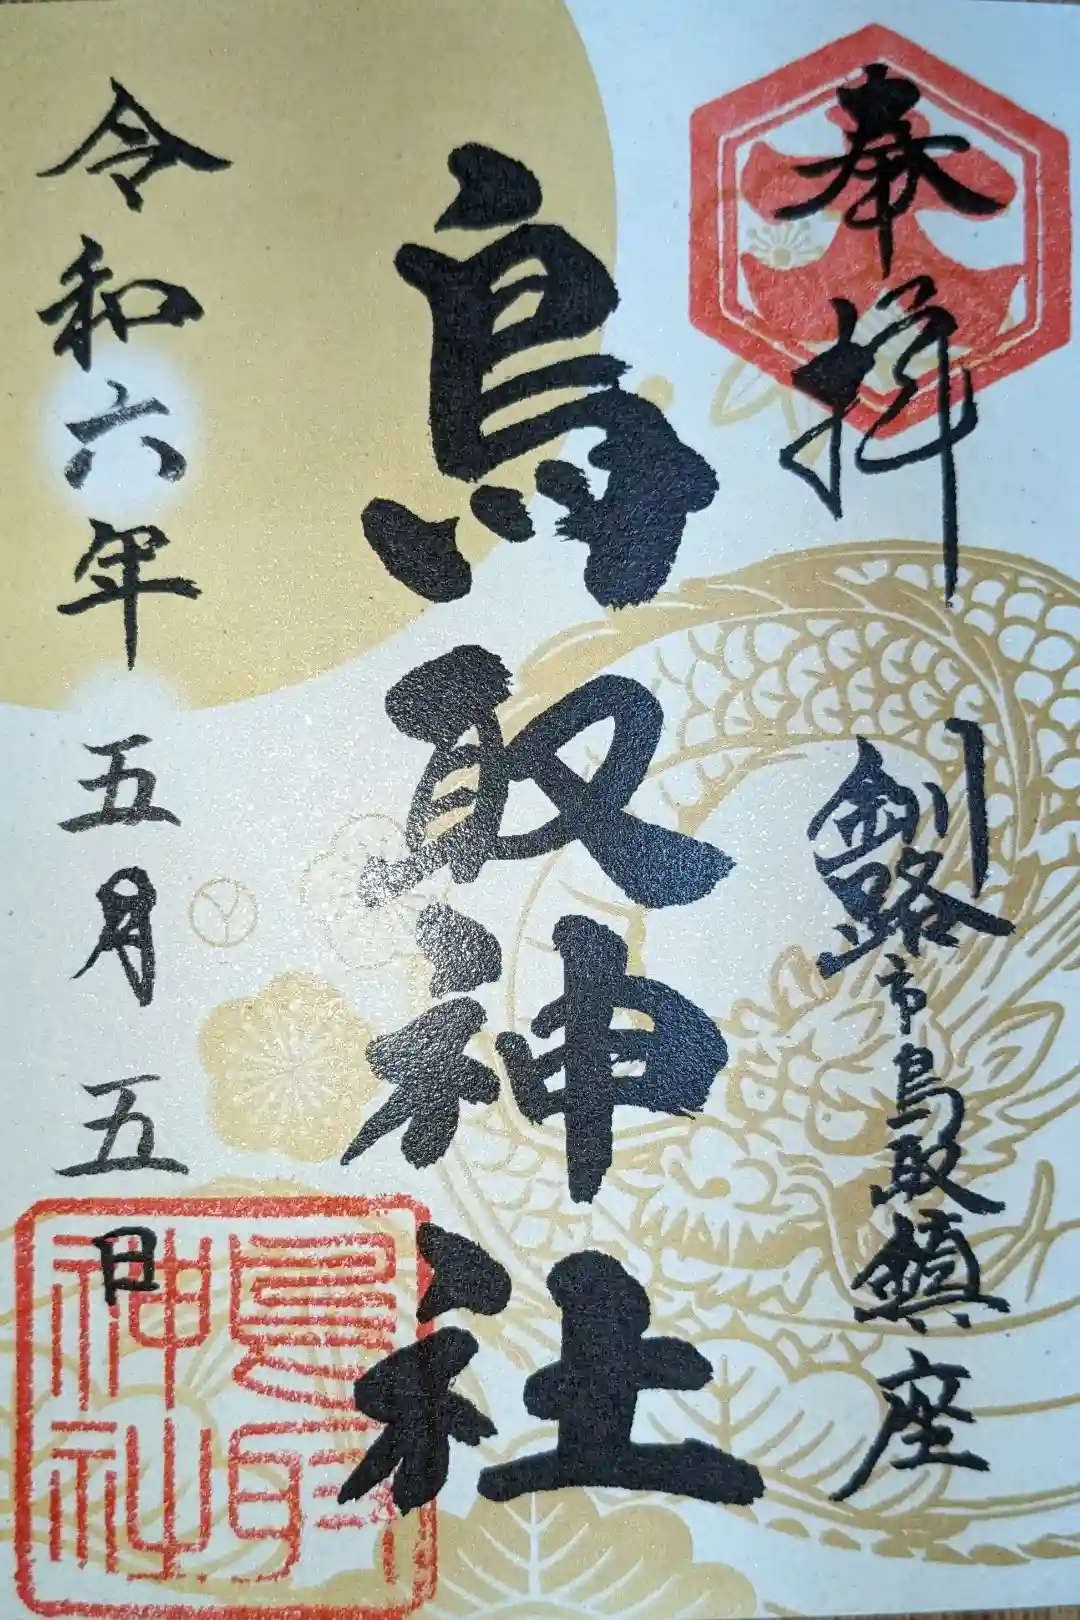 奉拝
釧路市鳥取鎮座
鳥取神社
令和六年五月五日
鳥取神社